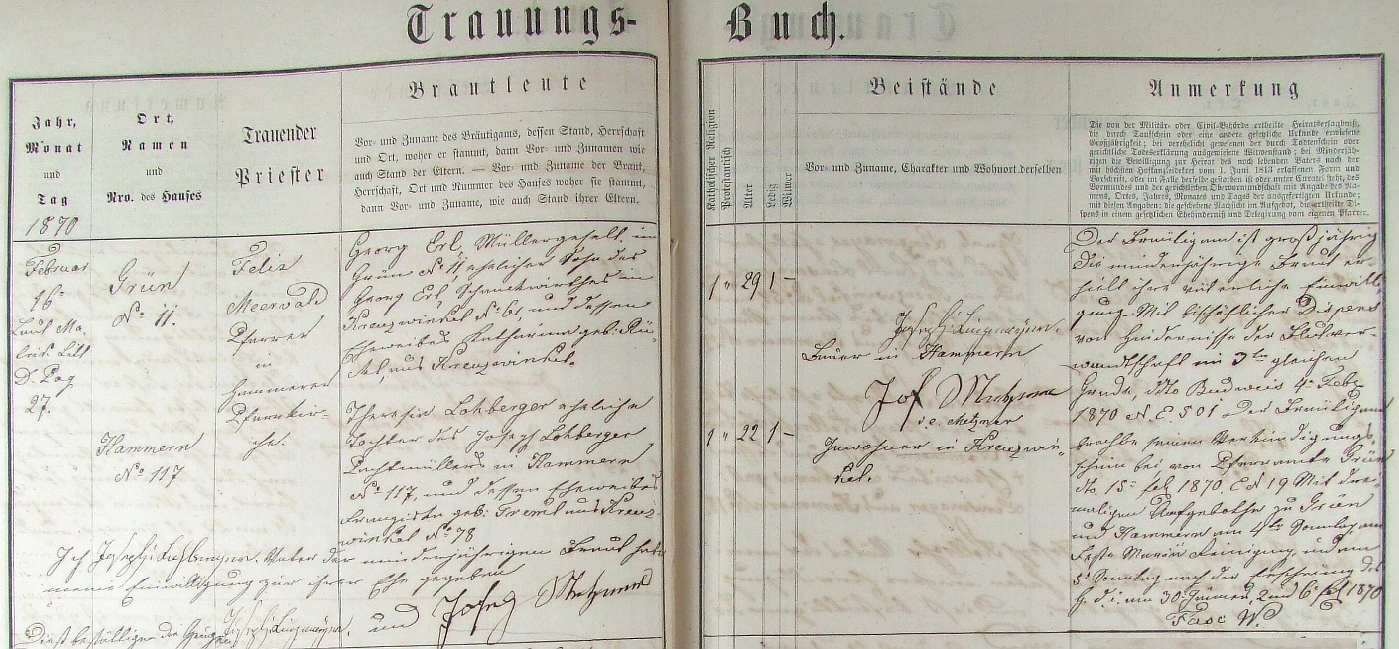 Trauungs-Buch.
Jahr, Monat und Tag
1870
Ort, Namen und Nro. des Hauses
Trauender Priester
Brautleute
Vor- und Zuname des Bräutigams, dessen Stand, Herrschaft
und Ort, woher er stammt, dann Vor- und Zunamen wie
auch Stand der Eltern. — Vor- und Zuname der Braut,
Herrschaft, Ort und Nummer des Hauses woher sie stammt,
dann Vor- und Zuname, wie auch Stand ihrer Eltern.
Katholischer Religion
Protestantisch
Alter
Ledig
Witwer
Beistände
Vor- und Zuname, Charakter und Wohnort derselben
Anmerkung
Die von der Militär- oder Civil-Behörde ertheilte Heiratserlaubniß,
die durch Taufschein oder eine andere gesetzliche Urkunde erwiesene
Großjährigkeit; bei verehelicht gewesenen der durch Todtenschein oder
gerichtliche Todeserklärung ausgewiesene Witwenstand; bei Minderjäh-
rigen die Bewilligung zur Heirat des noch lebenden Vaters nach der
mit höchsten Hofkanzleidekret vom 1. Juni 1813 erlassenen Form und
Vorschrift, oder im Falle derselbe gestorben ist oder unter Curatel steht, des
Vormundes und der gerichtlichen Obervormundschaft mit Angabe des Na-
mens, Ortes, Jahres, Monates und Tages der ausgefertigten Urkunde;
mit diesen Angaben: die geschehene Nachsicht im Aufgebot, die ertheilte Di-
spens in einem gesetzlichen Ehehinderniß und Delegirung vom eigenen Pfarrer.
Februar
16.
27.
Grün
No 11.
Hammern
No 117
Felix
Meerwald
Pfarrer
in
Hammerer
Pfarrkir-
che.
Georg Erl, Müllergesell in
Grün No 11, ehelicher Sohn des
Georg Erl, Schankwirthes in
Kreuzwinkel No 61, und dessen
Eheweibes Katharina geb.
aus Kreuzwinkel.
Theresia Lohberger eheliche
Tochter des Joseph Lohberger
Pachtmüllers in Hammern
No 117, und dessen Eheweibes
geb. Treml aus Kreuz-
winkel No 78
1 " 29 1 –
1 " 22 1 –
Bauer in Hammern
Jos
Inwohner in Kreuzwin-
kel.
Der Bräutigam ist großjährig
Die minderjährige Braut er-
hielt ihre väterliche Einwilli-
gung. Mit bischöflicher Dispens
vom Hindernisse der Blutver-
wandtschaft im 3ten gleichen
Grade, dto Budweis 4. Febr
1870 N. E. 501 Der Bräutigam
brachte seinen Verkündigungs-
schein bei vom Pfarramte Grün
dto 15. Feb 1870. E N 19 Mit drei-
maligem Aufgebothe zu Grün
und Hammern am 4ten Sonntag am
Feste Mariä Reinigung, und am
5. Sonntag nach der Erscheinung des
H. d. i. am 30. Jänner, 2 und 6. Feb 1870
Vater der minderjährigen Braut habe
meine Einwilligung zur ihrer Ehe gegeben
und